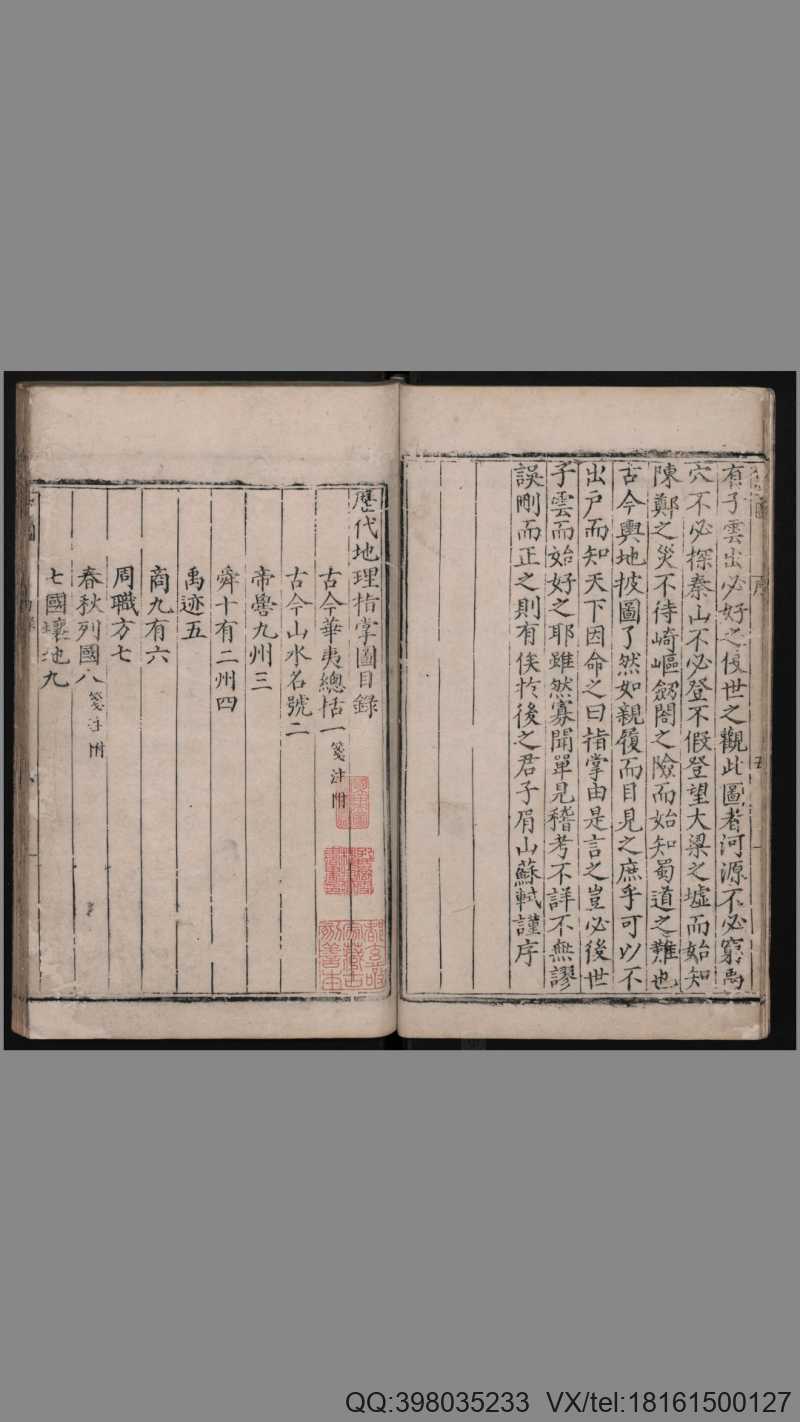 有子雲出必好之後世之觀此圖者河源不必窮禹
穴不必探泰山不必登不假登望大梁之墟而始知
陳鄭之災不待崎嶇劒閣之險而始知蜀道之難也
古今輿地披圖了然如親履而目見之庶乎可以不
出戶而知天下因命之曰指掌由是言之豈必後世
子雲而始好之耶雖然寡聞單見稽考不詳不無謬
誤剛而正之則有俟扵後之君子眉山蘇軾謹序
歷代地理指掌圖目錄
古今華夷總括一箋注附
古今山水名號二
帝嚳九州三
舜十有二州四
禹迹五
商九有六
周職方七
春秋列國八箋注附
七國壤地九
QQ:398035233 VX/tel:18161500127